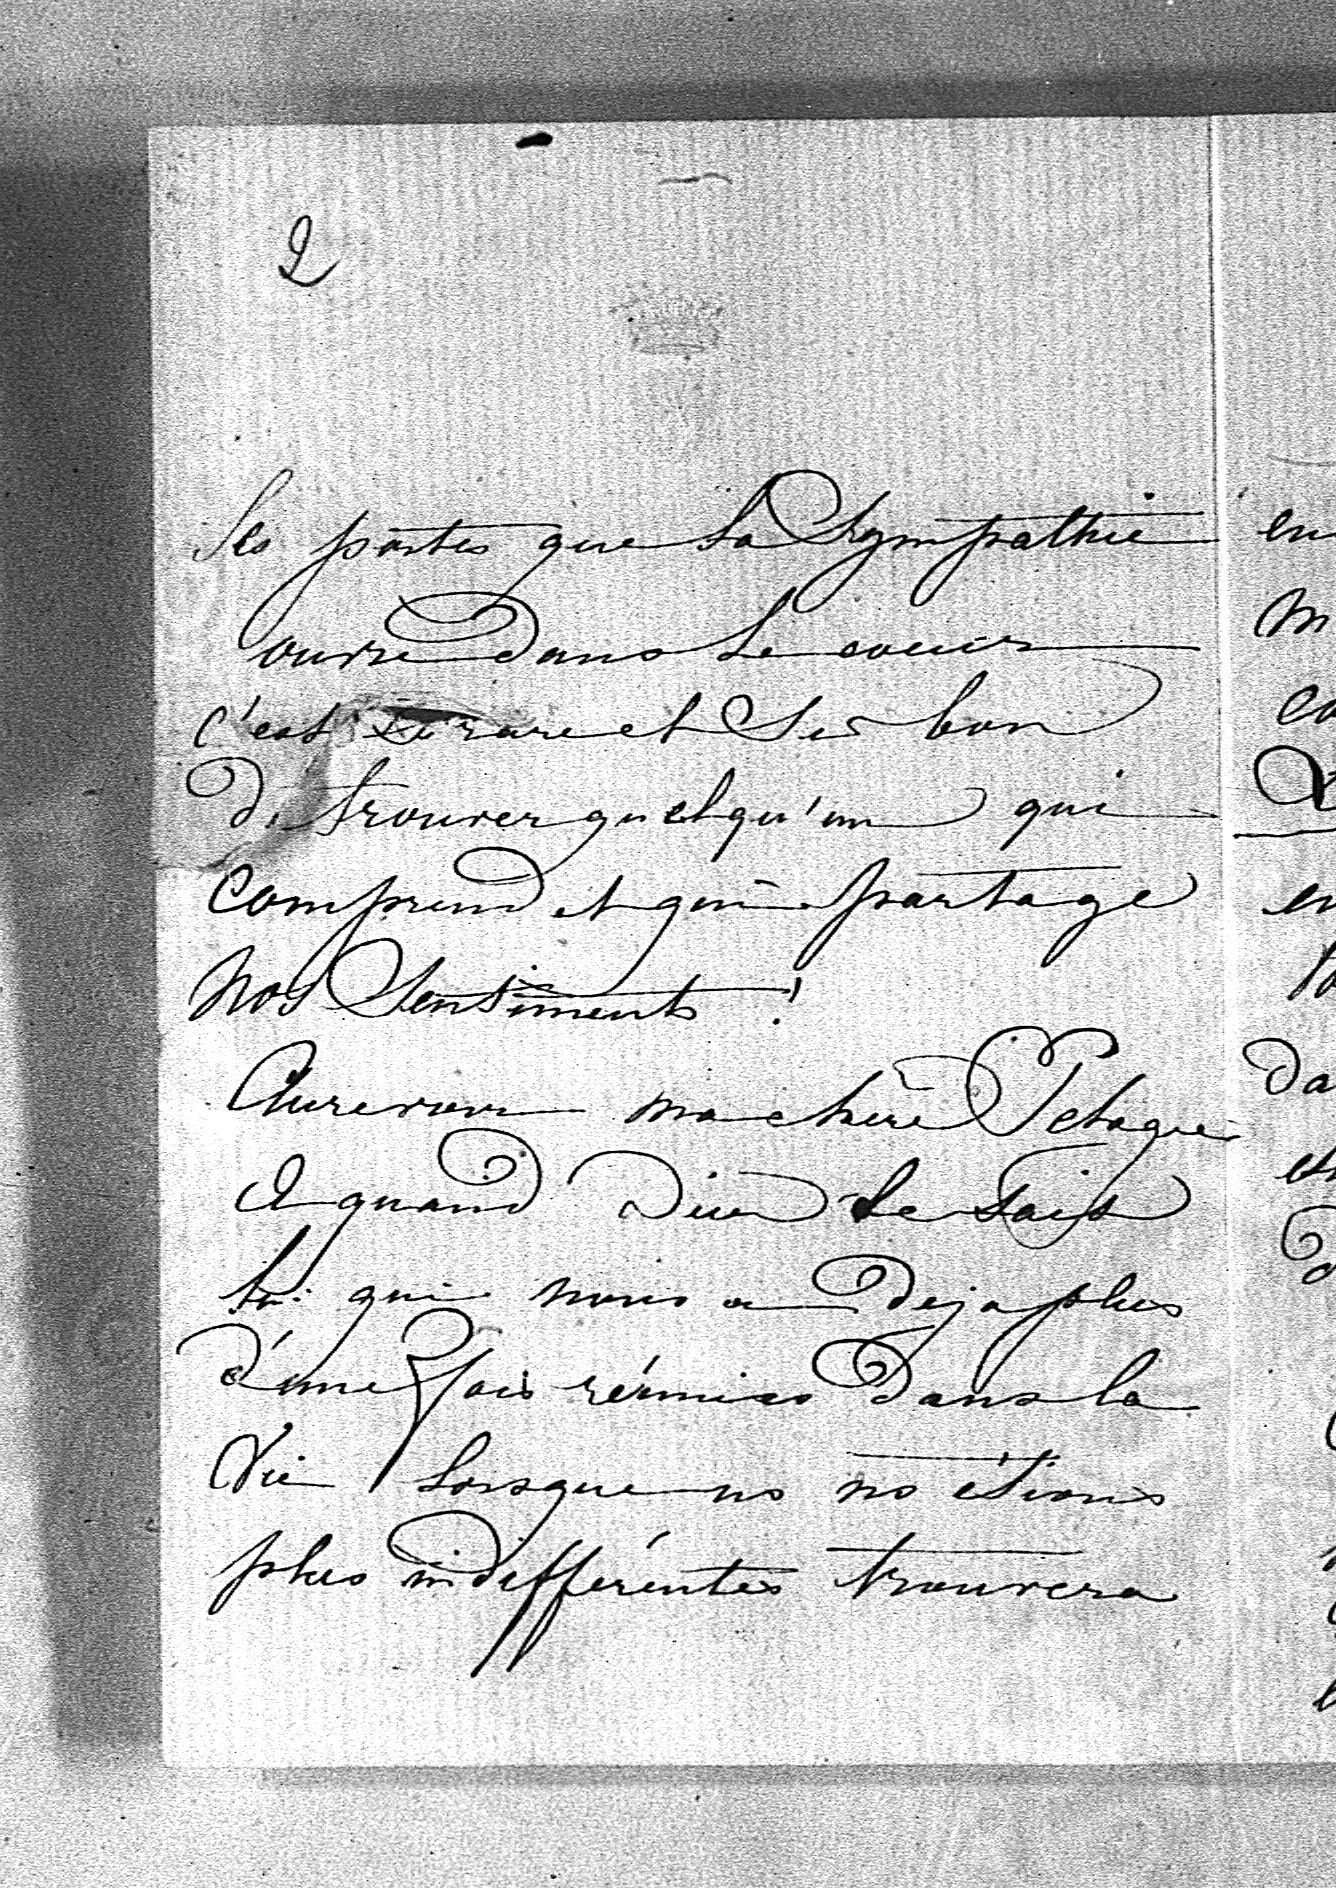 2
les portes que la Sympathie
ouvre dans le coeur
c'est si rare et si bon
de trouver quelqu'un qui
comprend et qui partage
nos Sentiments !
Aurevoir ma chère
et quand Dieu le sait
lui qui nous a deja plus
d'une fois réunies dans la
Vie lorsque ns ns étions
plus indifférentes trouvera